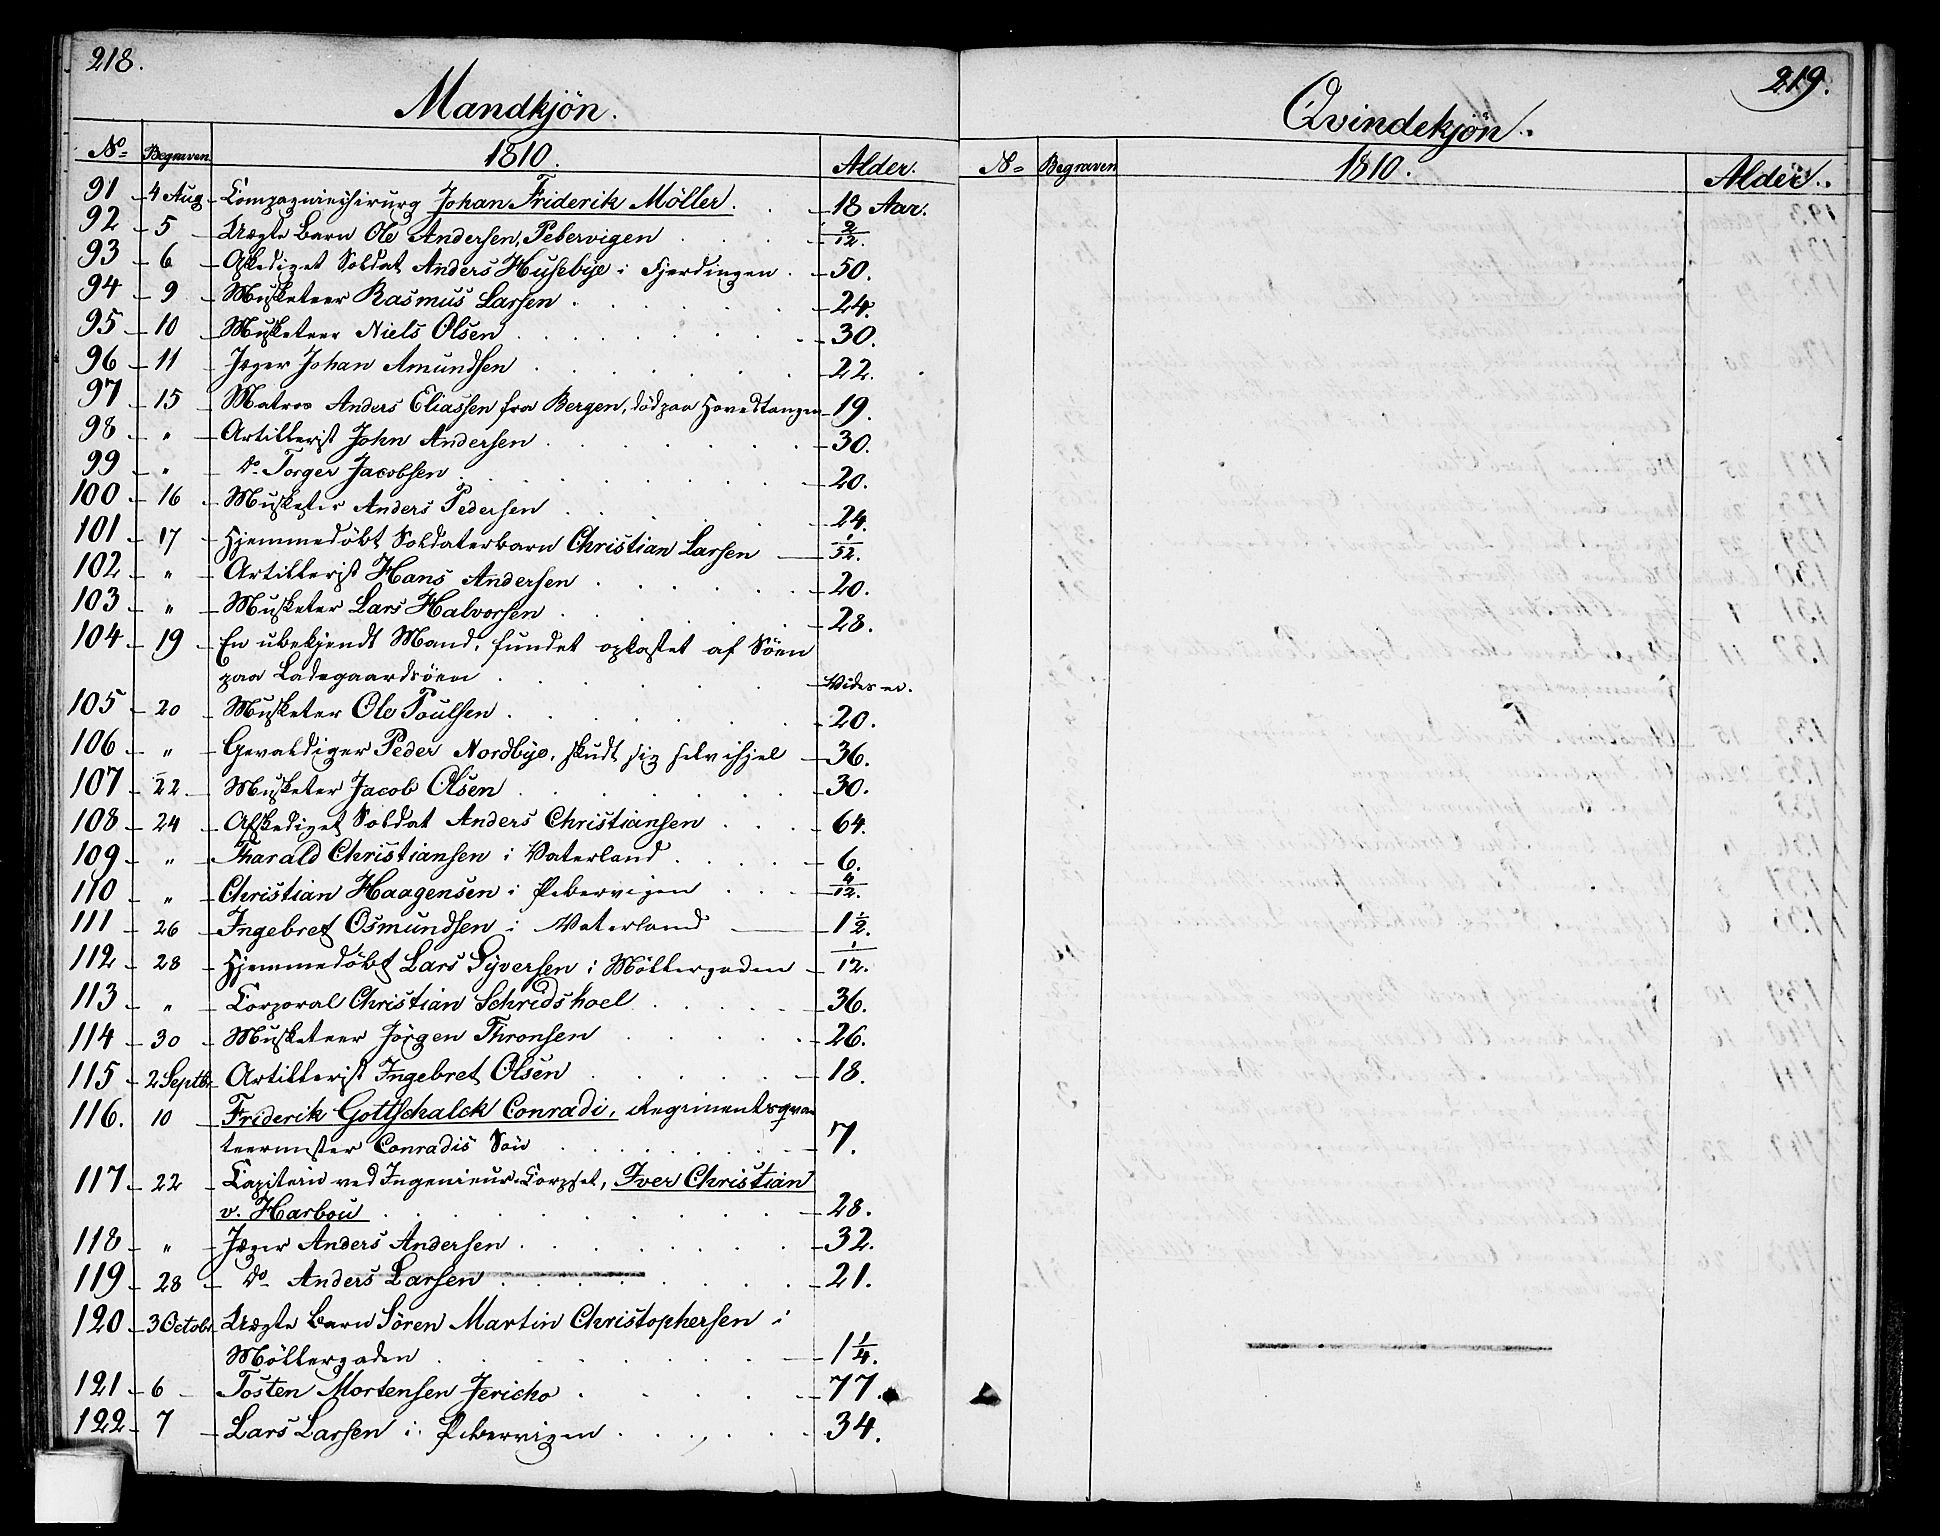 218.
Mandkjön.
No Begraven 1810. Alder.
91 4 Aug Compagniechirurg Johan Friderik Möller. 18 Aar.
92 5 Uægte Barn Ole Andersen, Pebervigen 2/12.
93 6 Afskediget Soldat Anders Husebye i Fjerdingen. 50.
94 9 Musketeer Rasmus Larsen. 24.
95 10 Musketeer Niels Olsen 30.
96 11 Jæger Johan Amundsen 22.
97 15 Matros Anders Eliassen fra Bergen, död paa Hovedtangen 19.
98 " Artillerist John Andersen 30.
99 " do Torger Jacobsen 20.
100 16 Musketer Anders Pedersen 24.
101 17 Hjemmedöbt Soldaterbarn Christian Larsen 1/52.
102 " Artillerist Hans Andersen 20.
103 " Musketer Lars Halvorsen 28.
104 19 En ubekjendt Mand, fundet opkastet af Söen
paa Ladegaardsöen Vides ei.
105 20 Musketer Ole Poulsen. 20.
106 " Gevaldiger Peder Nordbye, skudt sig selv ihjel 36.
107 22 Musketer Jacob Olsen 30.
108 24 Afskediget Soldat Anders Christiansen 64.
109 " Tharald Christiansen i Vaterland 6.
110 " Christian Haagensen i Pebervigen 4/12.
111 26 Ingebret Osmundsen i Vaterland 1 1/2.
112 28 Hjemmedöbt Lars Syversen i Möllergaden 1/12.
113 " Corporal Christian Schridshoel 36.
114 30 Musketeer Jörgen Thronsen 26.
115 2 Septbr Artillerist Ingebret Olsen 18.
116. 10 Friderik Gottschalck Conradi, Regimentsqvar
teermester Conradis Sön 7.
117 22 Capitein ved Ingenieur-Corpset, Iver Christian
v. Harbou 28.
118 " Jæger Anders Andersen 32.
119 28 do Anders Larsen 21.
120 3 Octobr Uægte Barn Sören Martin Christophersen i
Möllergaden 1 1/4.
121 6 Tosten Mortensen Jericho 77.
122 7 Lars Larsen i Pebervigen 34.
219.
Qvindekjön.
No Begraven 1810. Alder.